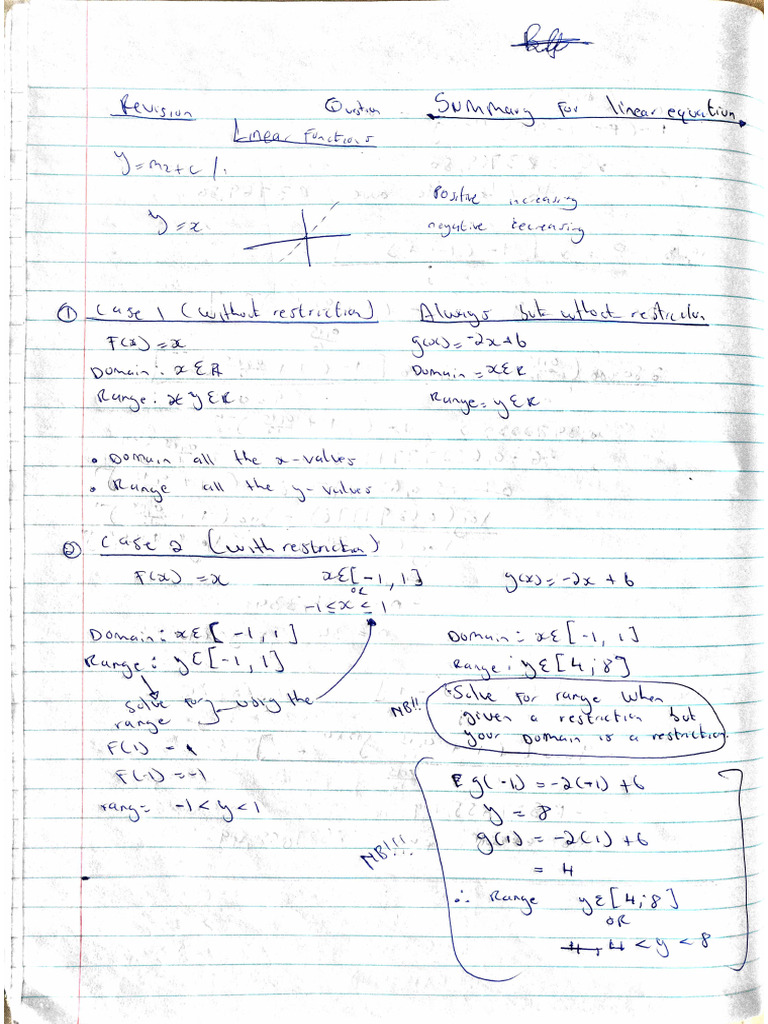 Revision Question Summary for linear equation
Linear Functions
y = mx + c /.
Positive increasing
y = x
negative decreasing
① Case 1 (without restriction) Always but without restriction
F(x) = x g(x) = -2x+6
Domain: xƐR Domain = xƐR
Range: yƐR Range = yƐR
• Domain all the x-values
• Range all the y-values
② Case 2 (with restriction)
F(x) = x xƐ[-1, 1] g(x) = -2x + 6
OR
-1 ≤ x ≤ 1
Domain: xƐ[-1, 1] Domain: xƐ[-1, 1]
Range: yƐ[-1, 1] Range: yƐ[4;8]
Solve for using the
range
NB!! Solve for range when
given a restriction but
your Domain is a restriction.
F(1) = 1
F(-1) = -1
rang = -1 < y < 1
g(-1) = -2(-1) + 6
y = 8
g(1) = -2(1) + 6
NB!!! = 4
∴ Range yƐ[4;8]
OR
4 < y < 8